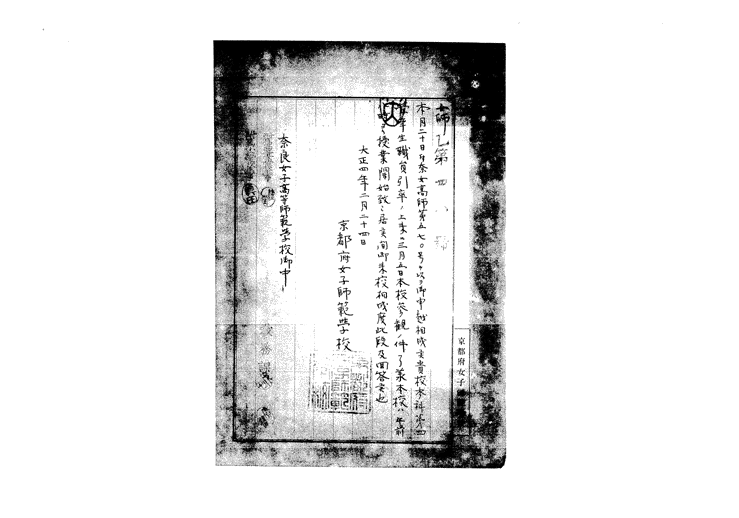 師乙第四八号
本月二十日付奈女高師第五七〇号ヲ以テ御申越相成候貴校本科第四
学年生職員引率ノ上来ル三月五日本校参観ノ件了承本校ハ午前
時ヨリ授業開始致シ居候間御来校相成度此段及回答候也
大正四年二月二十四日
京都府女子師範学校
奈良女子高等師範学校御中
京都府女子